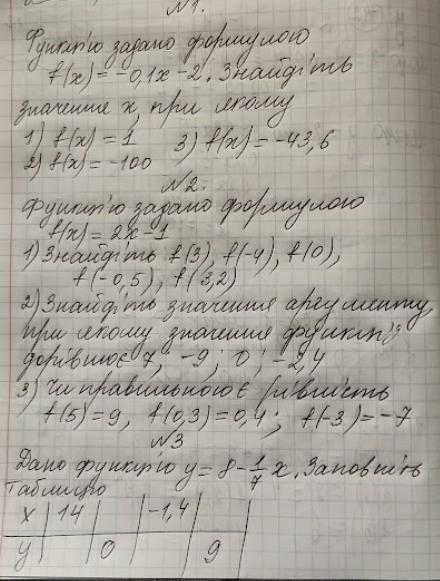 №1.
Функцію задано формулою
f(x) = -0,1x - 2. Знайдіть
значення x, при якому
1) f(x) = 1   3) f(x) = -43,6
2) f(x) = -100
№2.
Функцію задано формулою
f(x) = 2x - 1
1) Знайдіть f(3), f(-4), f(0),
f(-0,5), f(3,2)
2) Знайдіть значення аргументу,
при якому значення функції
дорівнює 7; -9; 0; -2,4
3) Чи правильною є рівність
f(5) = 9, f(0,3) = 0,4; f(-3) = -7
№3
Дано функцію y = 8 - 1/7 x. Заповніть
таблицю
x | 14 | | -1,4 |
y | | 0 | | 9